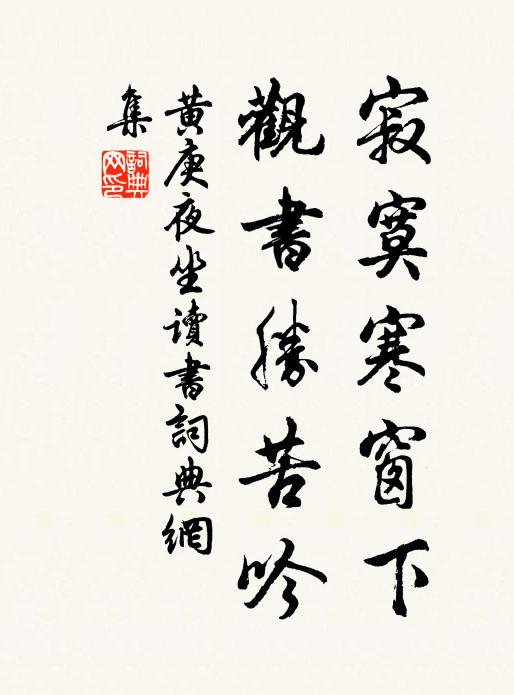 寂寞寒窗下
觀書勝苦吟
黄庚夜坐讀書詞典網
集
詞典
网印